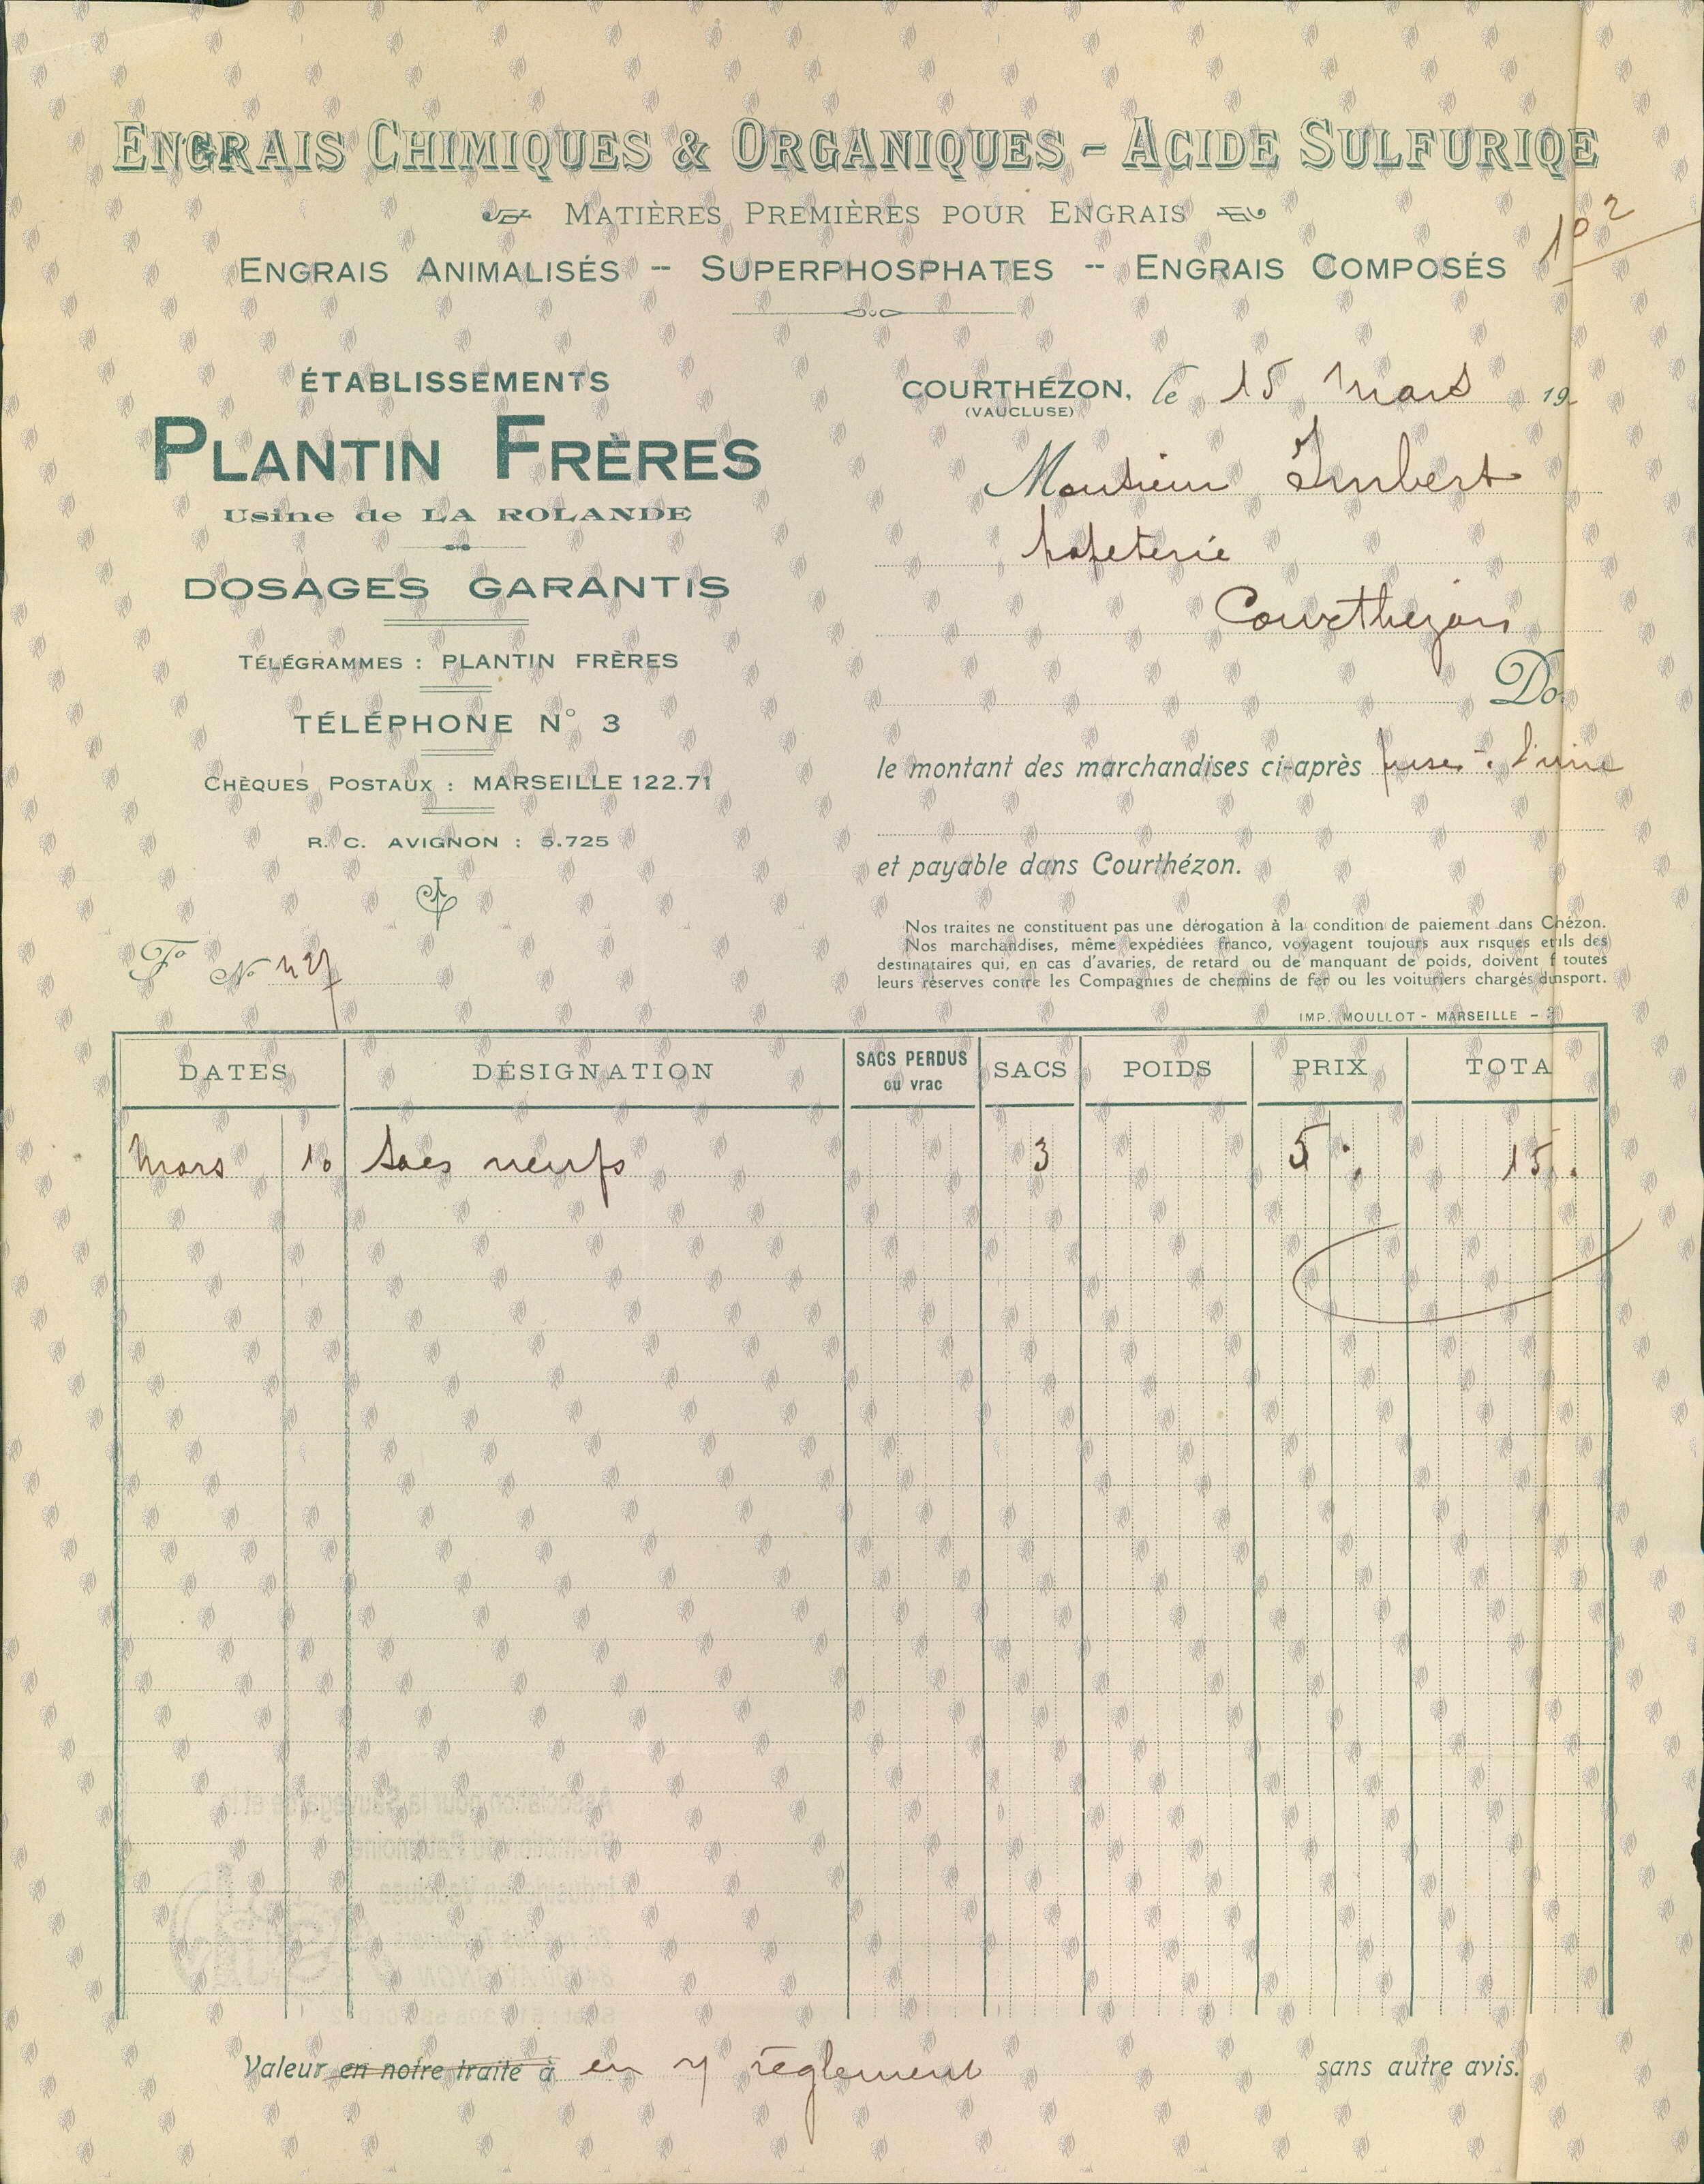 ENGRAIS CHIMIQUES & ORGANIQUES - ACIDE SULFURIQE
MATIÈRES PREMIÈRES POUR ENGRAIS
ENGRAIS ANIMALISÉS -- SUPERPHOSPHATES -- ENGRAIS COMPOSÉS
102
ÉTABLISSEMENTS
PLANTIN FRÈRES
Usine de LA ROLANDE
DOSAGES GARANTIS
TÉLÉGRAMMES : PLANTIN FRÈRES
TÉLÉPHONE N° 3
CHÈQUES POSTAUX : MARSEILLE 122.71
R. C. AVIGNON : 5.725
F° N°
COURTHÉZON, le 15 Mars 19
(VAUCLUSE)
Monsieur Imbert
papeterie
Courthezon
Do
le montant des marchandises ci-après prises l'usine
et payable dans Courthézon.
Nos traites ne constituent pas une dérogation à la condition de paiement dans Chézon.
Nos marchandises, même expédiées franco, voyagent toujours aux risques et ils des
destinataires qui, en cas d'avaries, de retard ou de manquant de poids, doivent f toutes
leurs réserves contre les Compagnies de chemins de fer ou les voituriers chargés dinsport.
IMP. MOULLOT - MARSEILLE -
DATES DÉSIGNATION SACS PERDUS ou vrac SACS POIDS PRIX TOTA
Mars 10 Sacs neufs 3 5 15
Association pour la Sauvegarde et la
Promotion du Patrimoine
Industriel en Vaucluse
84000 AVIGNON
Valeur en notre traite à en règlement sans autre avis.